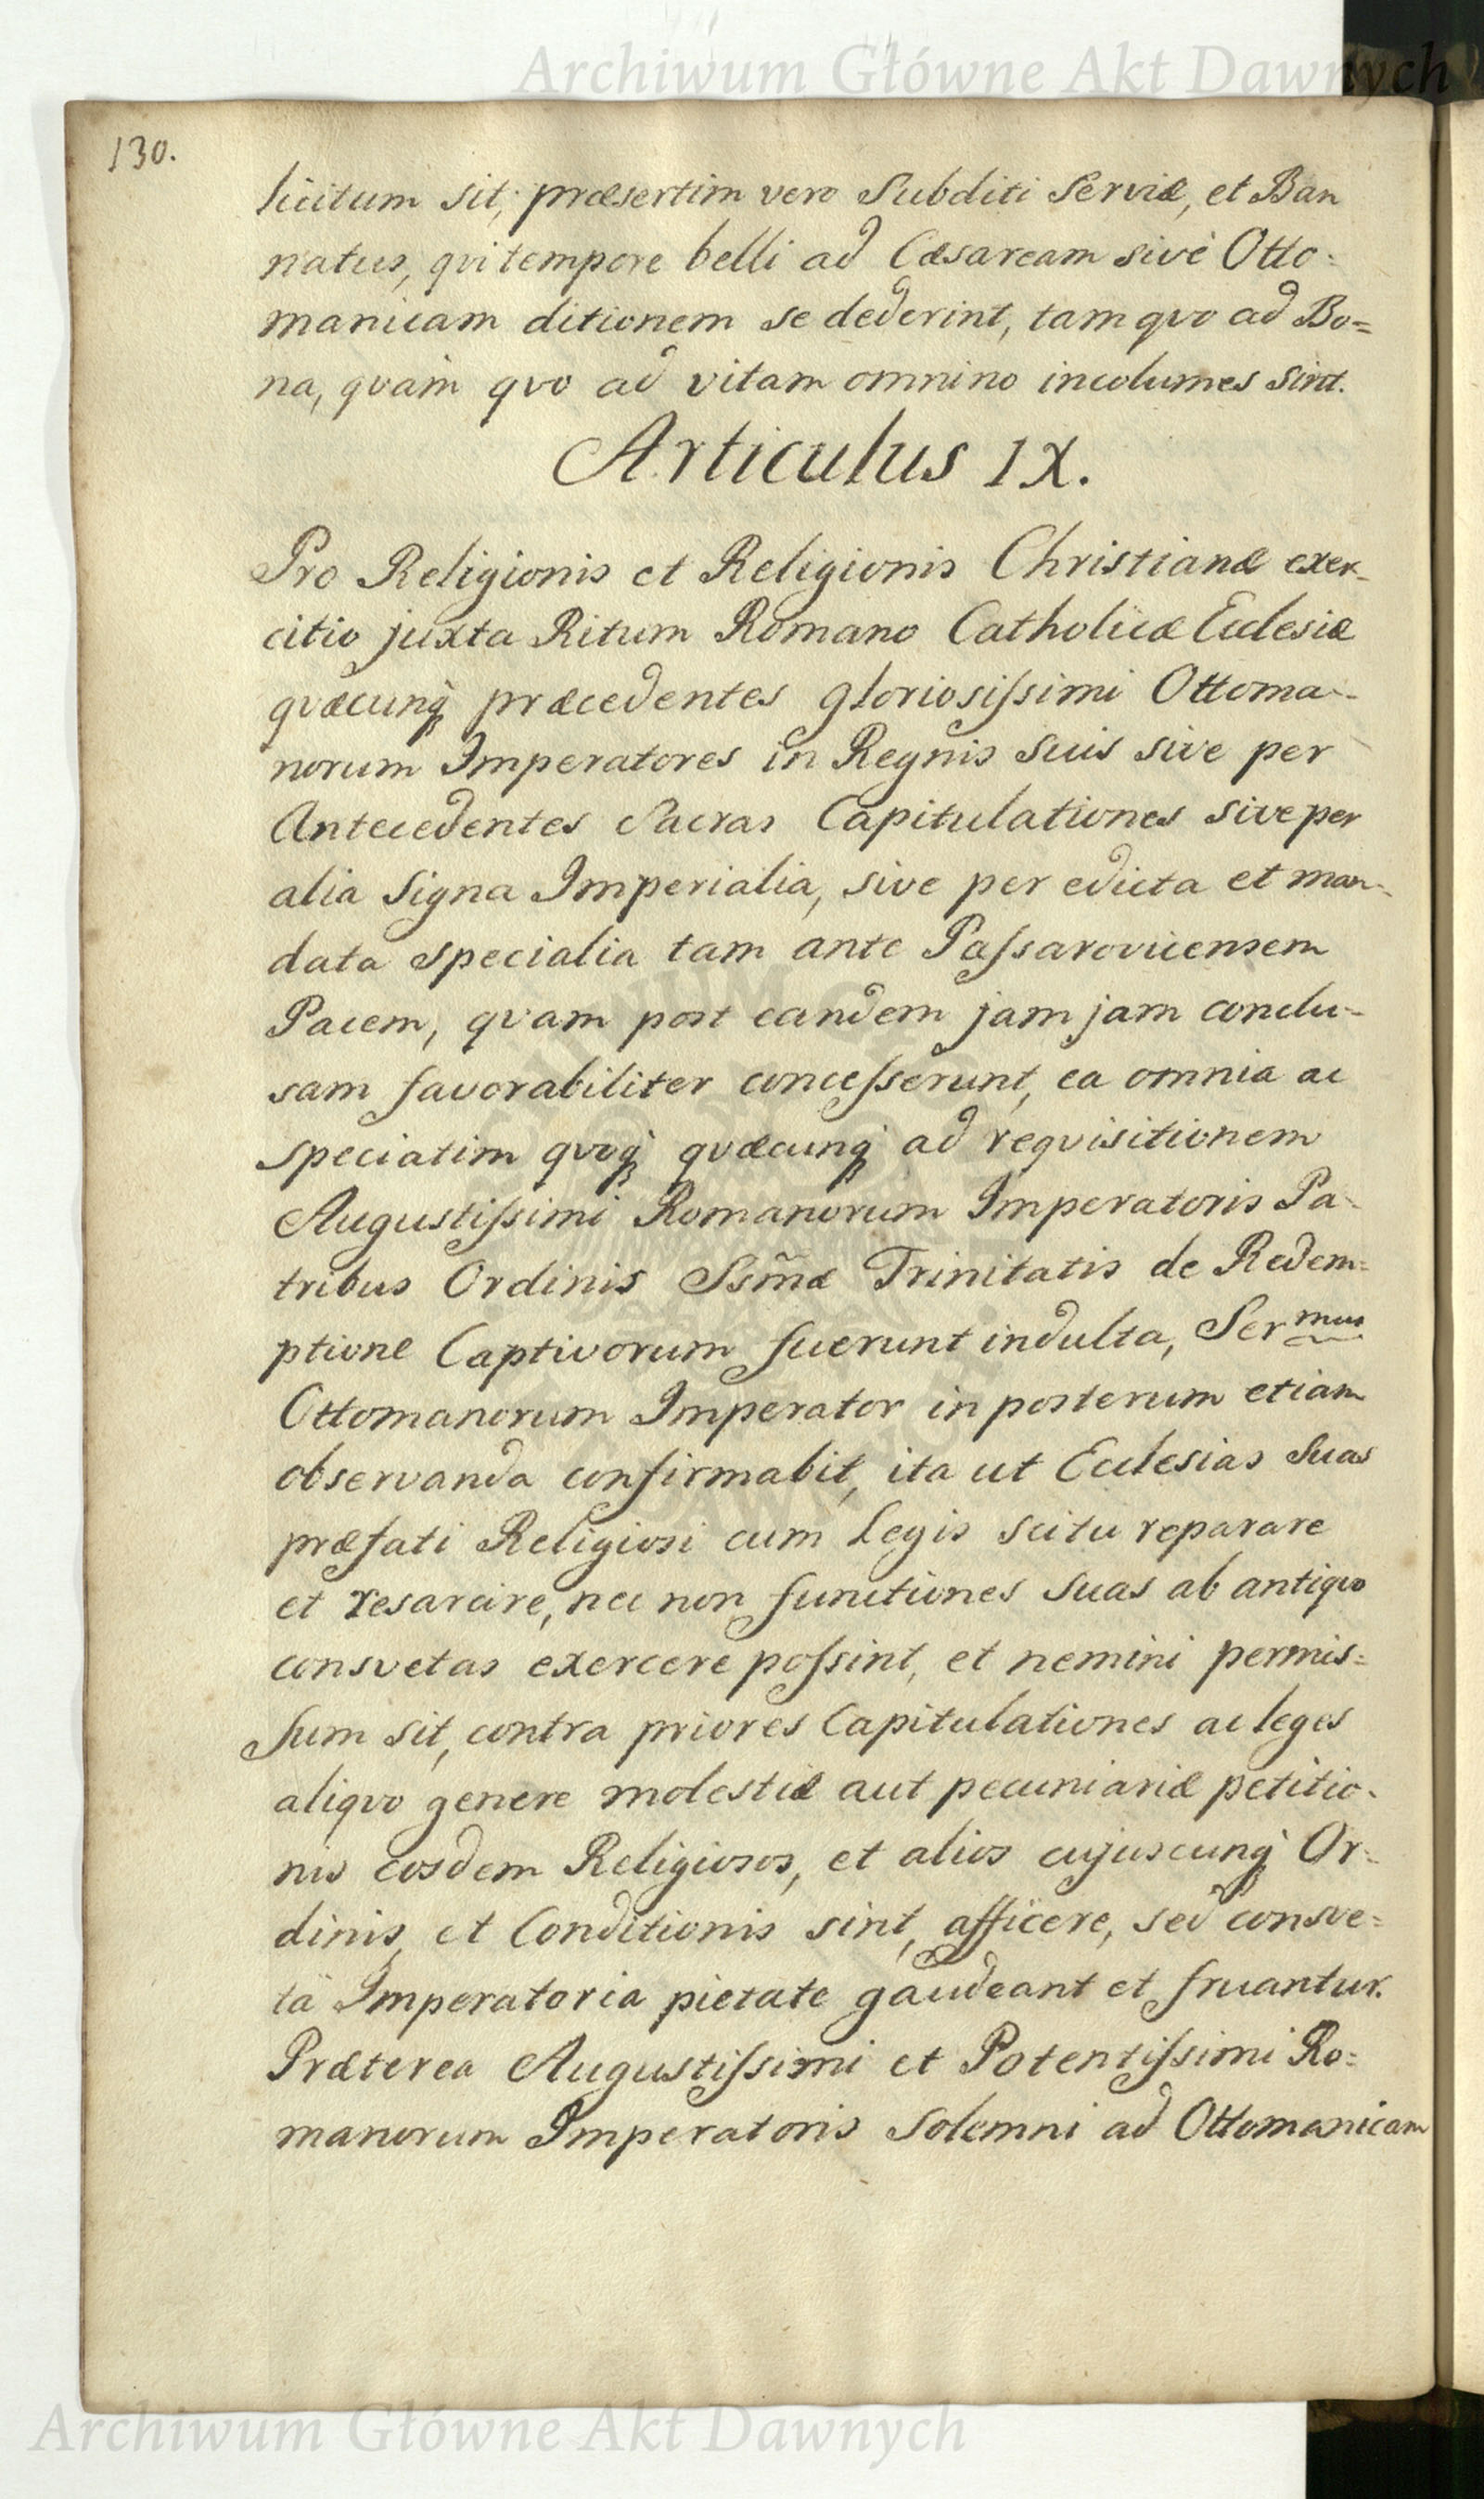 Archiwum Główne Akt Dawnych
130.
licitum sit; præsertim vero Subditi Serviæ, et Ban
natus, qui tempore belli ad Cæsaream sive Otto:
manicam ditionem se dederint, tam quo ad Bo=
na, quam quo ad vitam omnino incolumes sint.
Articulus IX.
Pro Religionis et Religionis Christianæ exer-
citio juxta Ritum Romano Catholicæ Ecclesiæ
quæcunq̨ præcedentes gloriosiſsimi Ottoma-
norum Imperatores in Regnis suis sive per
Antecedentes Sacras Capitulationes sive per
alia Signa Imperialia, sive per edicta et man-
data specialia tam ante Paſsarovicensem
Pacem, quam post eandem jam jam conclu-
sam favorabiliter conceſserunt, ea omnia ac
speciatim quoq̨ quæcunq̨ ad requisitionem
Augustiſsimi Romanorum Imperatoris Pa-
tribus Ordinis Ssm̃æ Trinitatis de Redem=
ptione Captivorum fuerunt indulta, Ser mus
Ottomanorum Imperator in posterum etiam
observanda confirmabit, ita ut Ecclesias Suas
præfati Religiosi cum Legis scitu reparare
et resarcire, nec non functiones suas ab antiquo
consvetas exercere poſsint, et nemini permis=
sum sit, contra priores Capitulationes ac leges
aliquo genere molestiæ aut pecuniariæ petitio-
nis eosdem Religiosos, et alios cujuscunq̨ Or-
dinis, et Conditionis sint, afficere, sed consve=
tâ Imperatoria pietate gaudeant et fruantur.
Præterea Augustiſsimi et Potentiſsimi Ro=
manorum Imperatoris Solemni ad Ottomanicam
Archiwum Główne Akt Dawnych